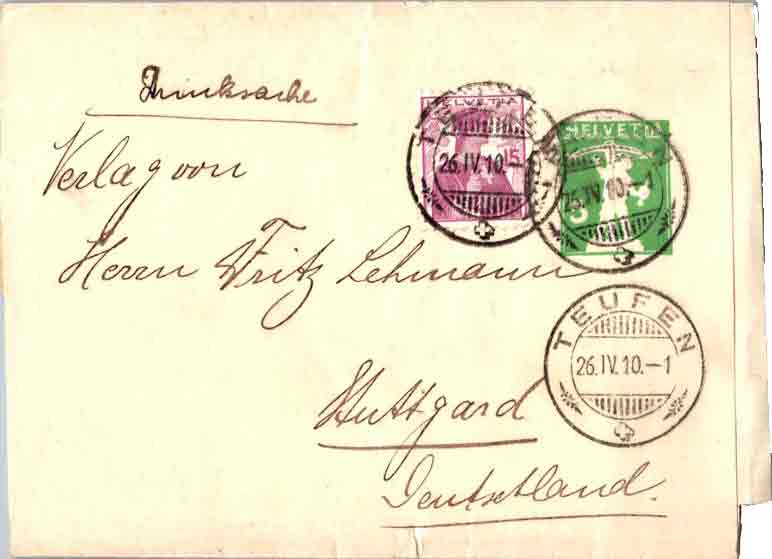 Drucksache
HELVETIA
15
26.IV.10.
HELVETIA
26.IV.10.-1
Verlag von
Herrn Fritz Lehmann
TEUFEN
26.IV.10.-1
Stuttgard
Deutschland.